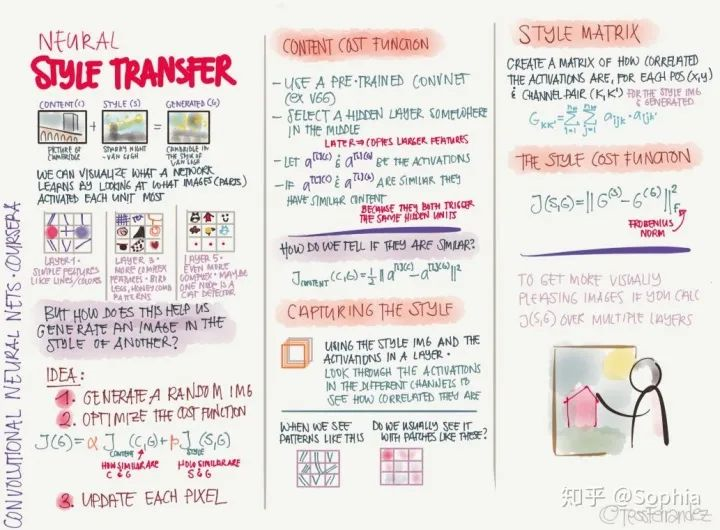 CONVOLUTIONAL NEURAL NETS · COURSERA
NEURAL
STYLE TRANSFER
CONTENT (C)
STYLE (S)
GENERATED (G)
+
=
PICTURE OF
CAMBRIDGE
STARRY NIGHT
-VAN GOGH
CAMBRIDGE IN
THE STYLE OF
VAN GOGH
WE CAN VISUALIZE WHAT A NETWORK
LEARNS BY LOOKING AT WHAT IMAGES (PARTS)
ACTIVATED EACH UNIT MOST
LAYER 1 ·
SIMPLE FEATURES
LIKE LINES/COLORS
LAYER 3 ·
MORE COMPLEX
FEATURES - BIRD
LEGS, HONEYCOMB
PATTERNS
LAYER 5 ·
EVEN MORE
COMPLEX · MAYBE
ONE NODE IS A
CAT DETECTOR
BUT HOW DOES THIS HELP US
GENERATE AN IMAGE IN THE
STYLE OF ANOTHER?
IDEA:
1. GENERATE A RANDOM IMG
2. OPTIMIZE THE COST FUNCTION
J(G) = α J CONTENT (C,G) + β J STYLE (S,G)
HOW SIMILAR ARE
C & G
HOW SIMILAR ARE
S & G
3. UPDATE EACH PIXEL
CONTENT COST FUNCTION
- USE A PRE-TRAINED CONVNET
(EX VGG)
- SELECT A HIDDEN LAYER SOMEWHERE
IN THE MIDDLE
LATER ⇒ COPIES LARGER FEATURES
- LET a[l](C) & a[l](G) BE THE ACTIVATIONS
- IF a[l](C) & a[l](G) ARE SIMILAR THEY
HAVE SIMILAR CONTENT
BECAUSE THEY BOTH TRIGGER
THE SAME HIDDEN UNITS
HOW DO WE TELL IF THEY ARE SIMILAR?
J CONTENT (C,G) = ½ || a[l](C) - a[l](G) ||²
CAPTURING THE STYLE
USING THE STYLE IMG AND THE
ACTIVATIONS IN A LAYER ·
LOOK THROUGH THE ACTIVATIONS
IN THE DIFFERENT CHANNELS TO
SEE HOW CORRELATED THEY ARE
WHEN WE SEE
PATTERNS LIKE THIS
DO WE USUALLY SEE IT
WITH PATCHES LIKE THESE?
STYLE MATRIX
CREATE A MATRIX OF HOW CORRELATED
THE ACTIVATIONS ARE, FOR EACH POS (X,Y)
& CHANNEL PAIR (K,K') FOR THE STYLE IMG
& GENERATED
G KK' = Σ Σ a ijk · a ijk'
THE STYLE COST FUNCTION
J(S,G) = || G(S) - G(G) ||² F
FROBENIUS
NORM
TO GET MORE VISUALLY
PLEASING IMAGES IF YOU CALC
J(S,G) OVER MULTIPLE LAYERS
知乎 @Sophia
@TessFerrandez